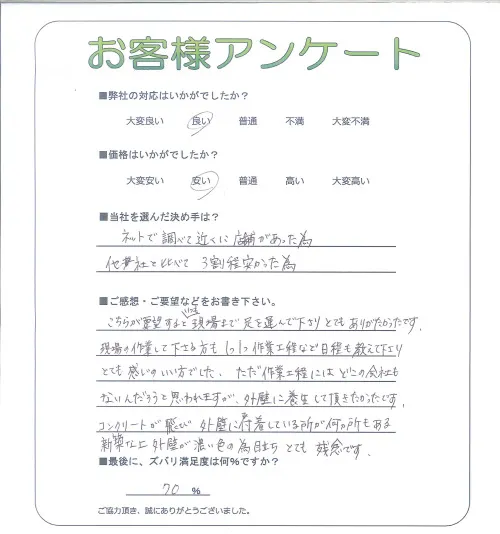 お客様アンケート
■弊社の対応はいかがでしたか？
大変良い 良い 普通 不満 大変不満
■価格はいかがでしたか？
大変安い 安い 普通 高い 大変高い
■当社を選んだ決め手は？
ネットで調べて近くに店舗があった為
他業社と比べて 3割程安かった為
■ご感想・ご要望などをお書き下さい。
こちらが要望すると いつも 現場まで足を運んで下さり とてもありがたかったです。
現場の作業して下さる方も 1つ1つ作業工程など日程も教えて下さり
とても感じのいい方でした。ただ作業工程にはどこの会社も
ないんだろうと思われますが、外壁に養生して頂きたかったです。
コンクリートが飛び 外壁に付着している所が何カ所もある
新築な上 外壁が濃い色の為目立ち とても 残念です。
■最後に、ズバリ満足度は何％ですか？
70 %
ご協力頂き、誠にありがとうございました。